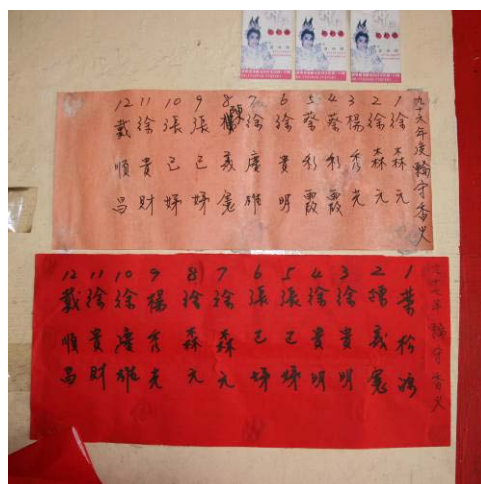 年度輪守香火
1徐森元
2徐森元
3楊秀光
4蔡彩霞
5蔡彩霞
6徐貴明
7徐慶雄
8陳義寬
9張已娣
10張已娣
11徐貴財
12戴順昌
年輪守香火
1葉松
2義寬
3徐貴明
4徐貴明
5張已娣
6張已娣
7徐森元
8徐森元
9楊秀光
10徐慶雄
11徐貴財
12戴順昌